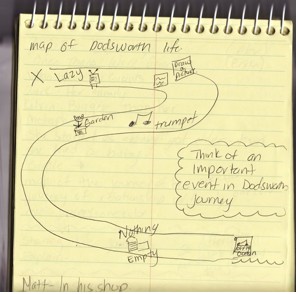 map of Dodsworth life.
X Lazy
Draw a picture
Garden
trumpet
Think of an
important
event in Dodsworth
journey
Nothing
Empty
Matt- In his shop